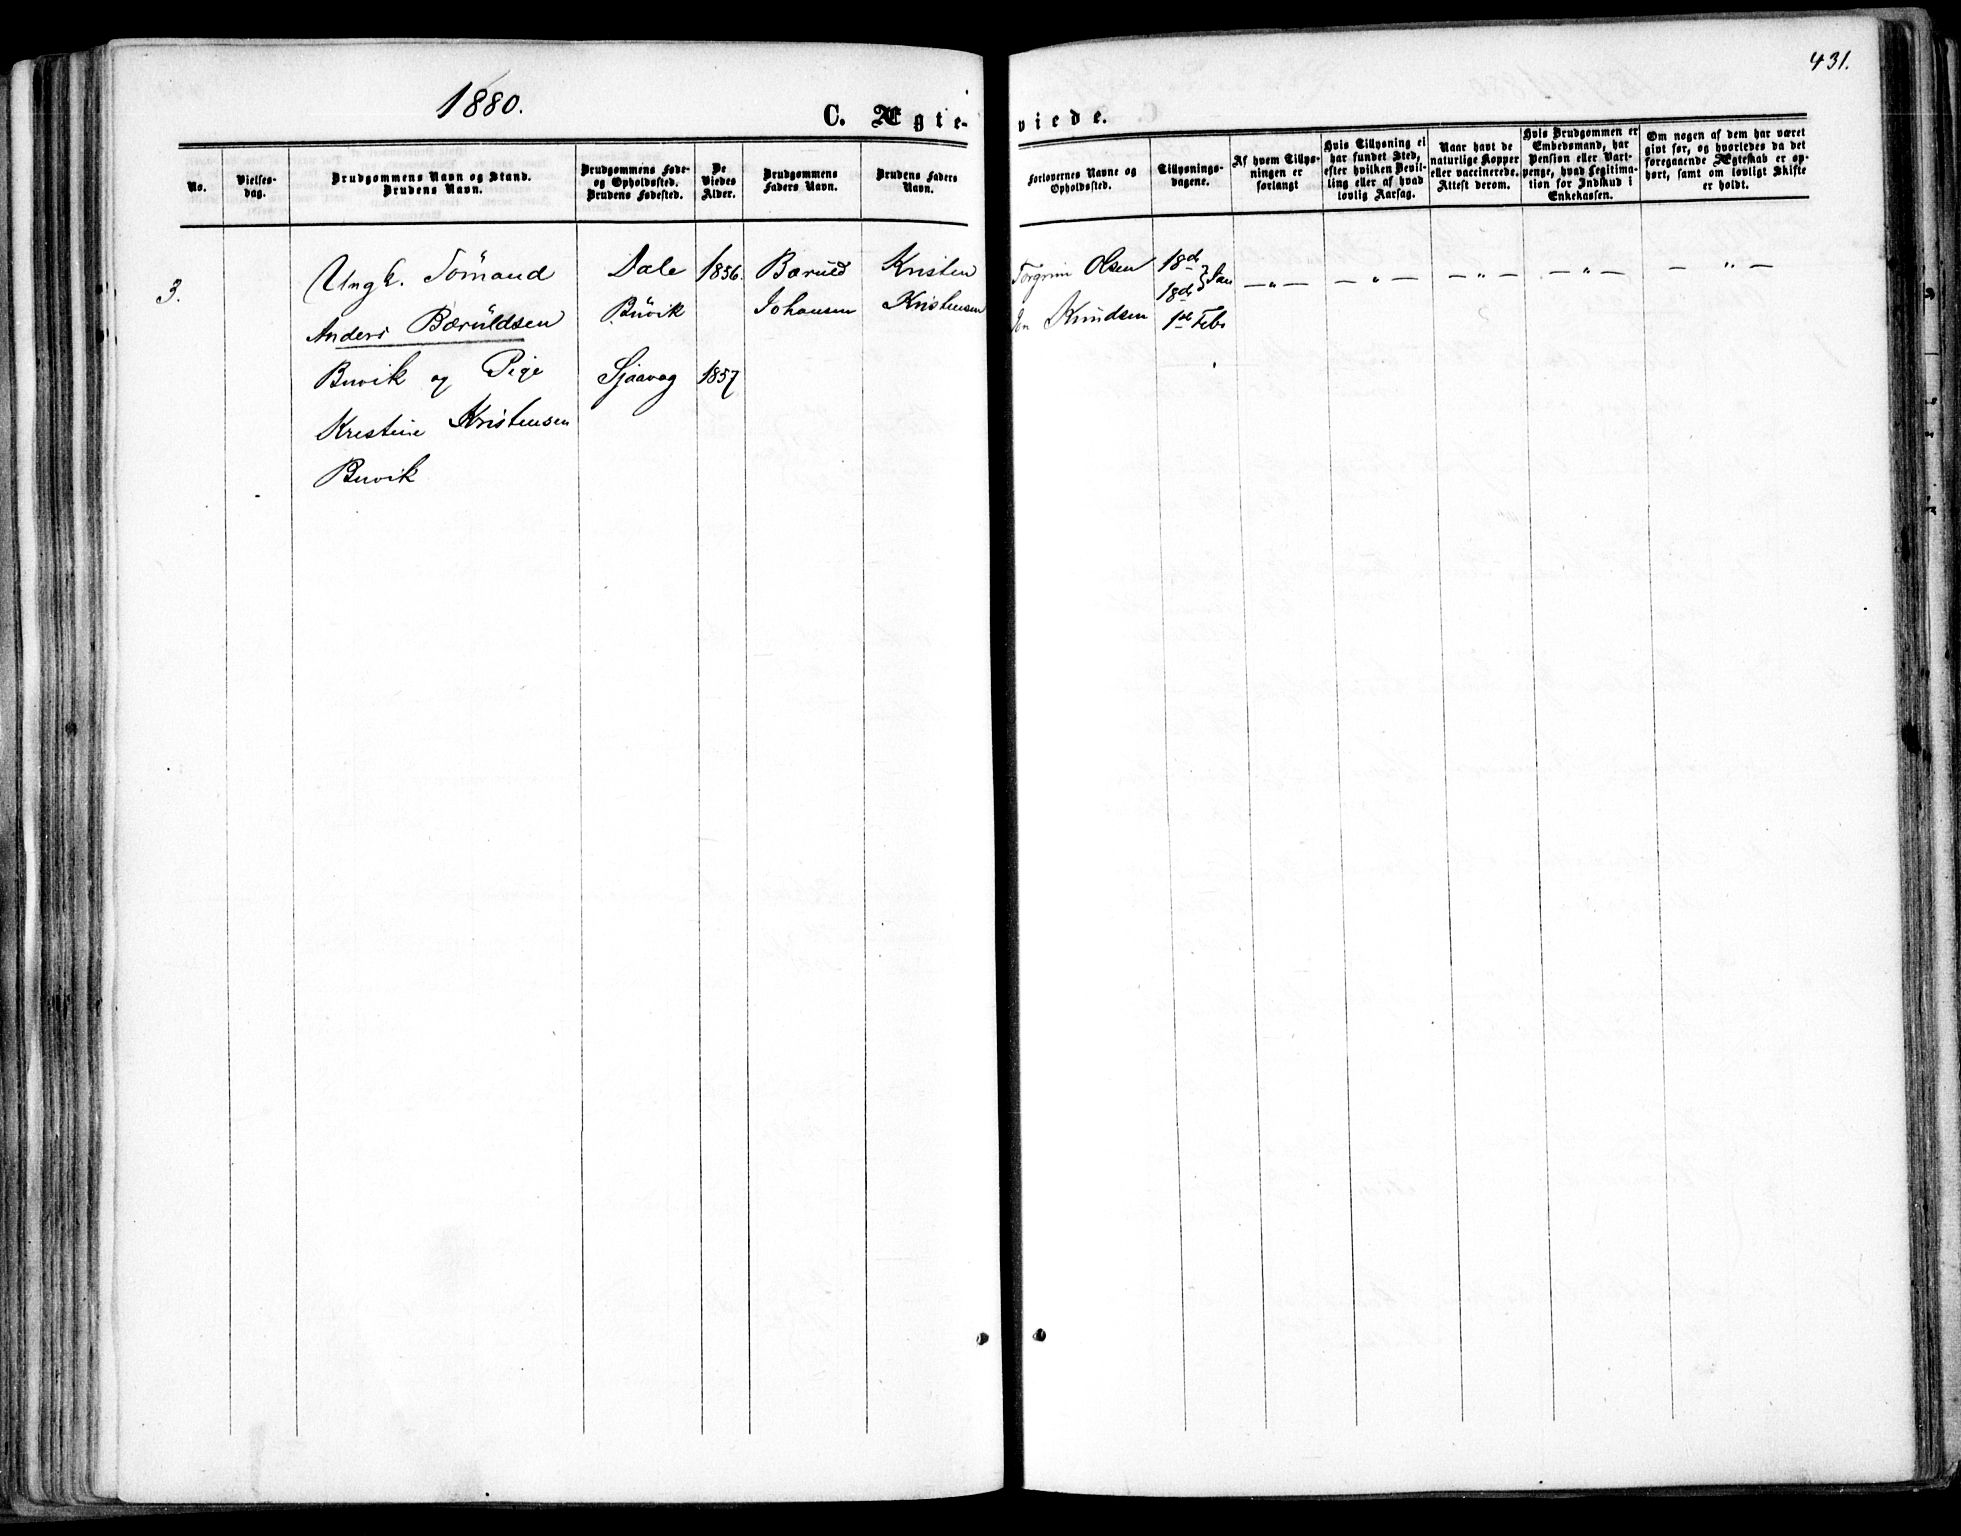 1880.
431.
C. Ægte-
viede.
No.
Vielses-
dag.
Brudgommens Navn og Stand.
Brudens Navn.
Brudgommens Føde-
og Opholdssted.
Brudens Fødested.
De
Viedes
Alder.
Brudgommens
Faders Navn.
Brudens Faders
Navn.
Forlovernes Navne og
Opholdssted.
Tillysnings-
dagene.
Af hvem Tillys-
ningen er
forlangt
Hvis Tillysning ei
har fundet Sted,
efter hvilken Bevil-
ling eller af hvad
lovlig Aarsag.
Naar havt de
naturlige Kopper
eller vaccinerede.
Attest derom.
Hvis Brudgommen er
Embedsmand, har
Pension eller Vart-
penge, hvad Legitima-
tion for Indskud i
Enkekassen.
Om nogen af dem har været
givt før, og hvorledes da det
foregaaende Ægteskab er op-
hørt, samt om lovligt Skifte
er holdt.
3.
Ungk. Sömand
Anders Bæruldsen
Buvik og Pige
Kristine Kristensen
Buvik
Dale
Buvik
Sjaavag
1856.
1857
Bæruld
Johansen
Kristen
Kristensen
Torgrim Olsen
Jon Knudsen
18de
18de } Jan
1ste Feb.
— „ —
— „ —
— „ —
— „ —
— „ —